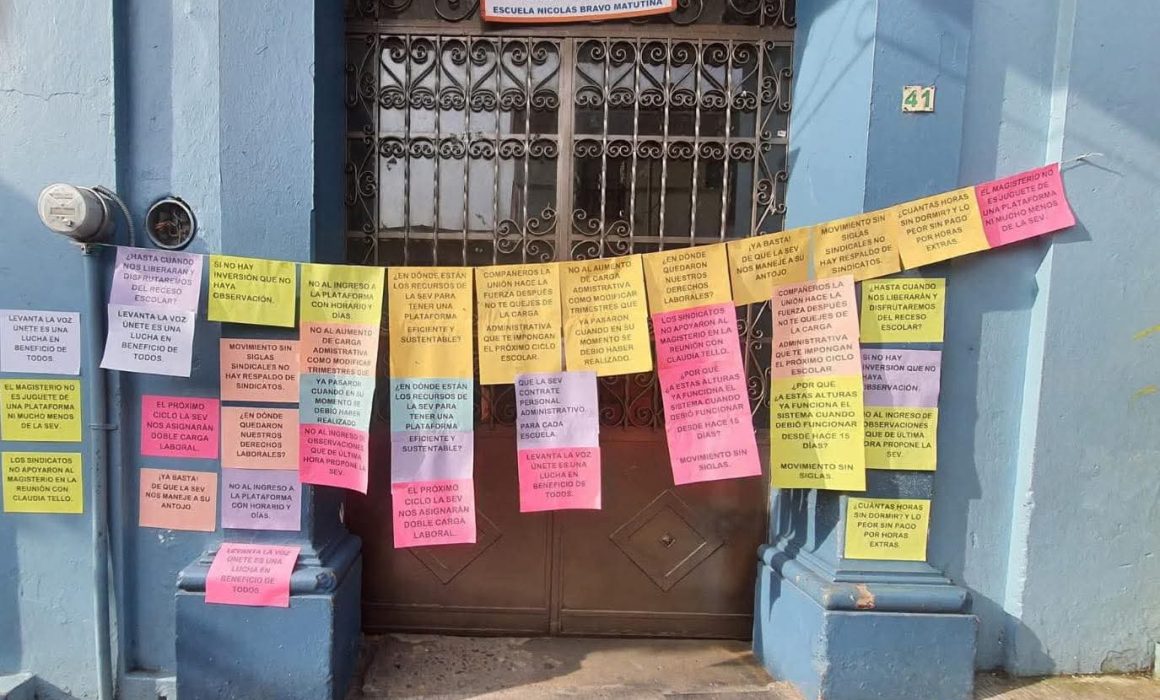 ESCUELA NICOLÁS BRAVO MATUTINA
41
LEVANTA LA VOZ
ÚNETE ES UNA
LUCHA EN
BENEFICIO DE
TODOS
EL MAGISTERIO NO
ES JUGUETE DE
UNA PLATAFORMA
NI MUCHO MENOS
DE LA SEV.
LOS SINDICATOS
NO APOYARON AL
MAGISTERIO EN LA
REUNIÓN CON
CLAUDIA TELLO.
¿HASTA CUANDO
NOS LIBERARÁN Y
DISFRUTAREMOS
DEL RECESO
ESCOLAR?
LEVANTA LA VOZ
ÚNETE ES UNA
LUCHA EN
BENEFICIO DE
TODOS
EL PRÓXIMO
CICLO LA SEV
NOS ASIGNARÁN
DOBLE CARGA
LABORAL.
¡YA BASTA!
DE QUE LA SEV
NOS MANEJE A SU
ANTOJO.
SI NO HAY
INVERSIÓN QUE NO
HAYA
OBSERVACIÓN.
MOVIMIENTO SIN
SIGLAS
SINDICALES NO
HAY RESPALDO DE
SINDICATOS.
¿EN DÓNDE
QUEDARON
NUESTROS
DERECHOS
LABORALES?
NO AL INGRESO A
LA PLATAFORMA
CON HORARIO Y
DÍAS.
LEVANTA LA VOZ
ÚNETE ES UNA
LUCHA EN
BENEFICIO DE
TODOS
NO AL INGRESO A
LA PLATAFORMA
CON HORARIO Y
DÍAS.
NO AL AUMENTO
DE CARGA
ADMISTRATIVA
COMO MODIFICAR
TRIMESTRES QUE
YA PASARON
CUANDO EN SU
MOMENTO SE
DEBIÓ HABER
REALIZADO
NO AL INGRESO DE
OBSERVACIONES
QUE DE ÚLTIMA
HORA PROPONE LA
SEV.
¿EN DÓNDE ESTÁN
LOS RECURSOS
DE LA SEV PARA
TENER UNA
PLATAFORMA
EFICIENTE Y
SUSTENTABLE?
¿EN DÓNDE ESTÁN
LOS RECURSOS
DE LA SEV PARA
TENER UNA
PLATAFORMA
EFICIENTE Y
SUSTENTABLE?
EL PRÓXIMO
CICLO LA SEV
NOS ASIGNARÁN
DOBLE CARGA
LABORAL.
COMPAÑEROS LA
UNIÓN HACE LA
FUERZA DESPUÉS
NO TE QUEJES DE
LA CARGA
ADMINISTRATIVA
QUE TE IMPONGAN
EL PRÓXIMO CICLO
ESCOLAR.
QUE LA SEV
CONTRATE
PERSONAL
ADMINISTRATIVO.
PARA CADA
ESCUELA.
LEVANTA LA VOZ
ÚNETE ES UNA
LUCHA EN
BENEFICIO DE
TODOS.
NO AL AUMENTO DE
CARGA
ADMISTRATIVA
COMO MODIFICAR
TRIMESTRES QUE
YA PASARON
CUANDO EN SU
MOMENTO SE
DEBIÓ HABER
REALIZADO.
¿EN DÓNDE
QUEDARON
NUESTROS
DERECHOS
LABORALES?
LOS SINDICATOS
NO APOYARON AL
MAGISTERIO EN LA
REUNIÓN CON
CLAUDIA TELLO.
¿POR QUÉ
A ESTAS ALTURAS
YA FUNCIONA EL
SISTEMA CUANDO
DEBIÓ FUNCIONAR
DESDE HACE 15
DÍAS?
MOVIMIENTO SIN
SIGLAS.
¡YA BASTA!
DE QUE LA SEV
NOS MANEJE A SU
ANTOJO.
COMPAÑEROS LA
UNIÓN HACE LA
FUERZA DESPUÉS
NO TE QUEJES
DE LA CARGA
ADMINISTRATIVA
QUE TE IMPONGAN
EL PRÓXIMO CICLO
ESCOLAR.
¿POR QUÉ
A ESTAS ALTURAS
YA FUNCIONA EL
SISTEMA CUANDO
DEBIÓ FUNCIONAR
DESDE HACE 15
DÍAS?
MOVIMIENTO SIN
SIGLAS.
MOVIMIENTO SIN
SIGLAS
SINDICALES NO
HAY RESPALDO DE
SINDICATOS.
¿HASTA CUANDO
NOS LIBERARÁN Y
DISFRUTAREMOS
DEL RECESO
ESCOLAR?
SI NO HAY
INVERSIÓN QUE NO
HAYA
OBSERVACIÓN.
NO AL INGRESO DE
OBSERVACIONES
QUE DE ÚLTIMA
HORA PROPONE LA
SEV.
¿CUÁNTAS HORAS
SIN DORMIR? Y LO
PEOR SIN PAGO
POR HORAS
EXTRAS.
¿CUÁNTAS HORAS
SIN DORMIR? Y LO
PEOR SIN PAGO
POR HORAS
EXTRAS.
EL MAGISTERIO NO
ES JUGUETE DE
UNA PLATAFORMA
NI MUCHO MENOS
DE LA SEV.